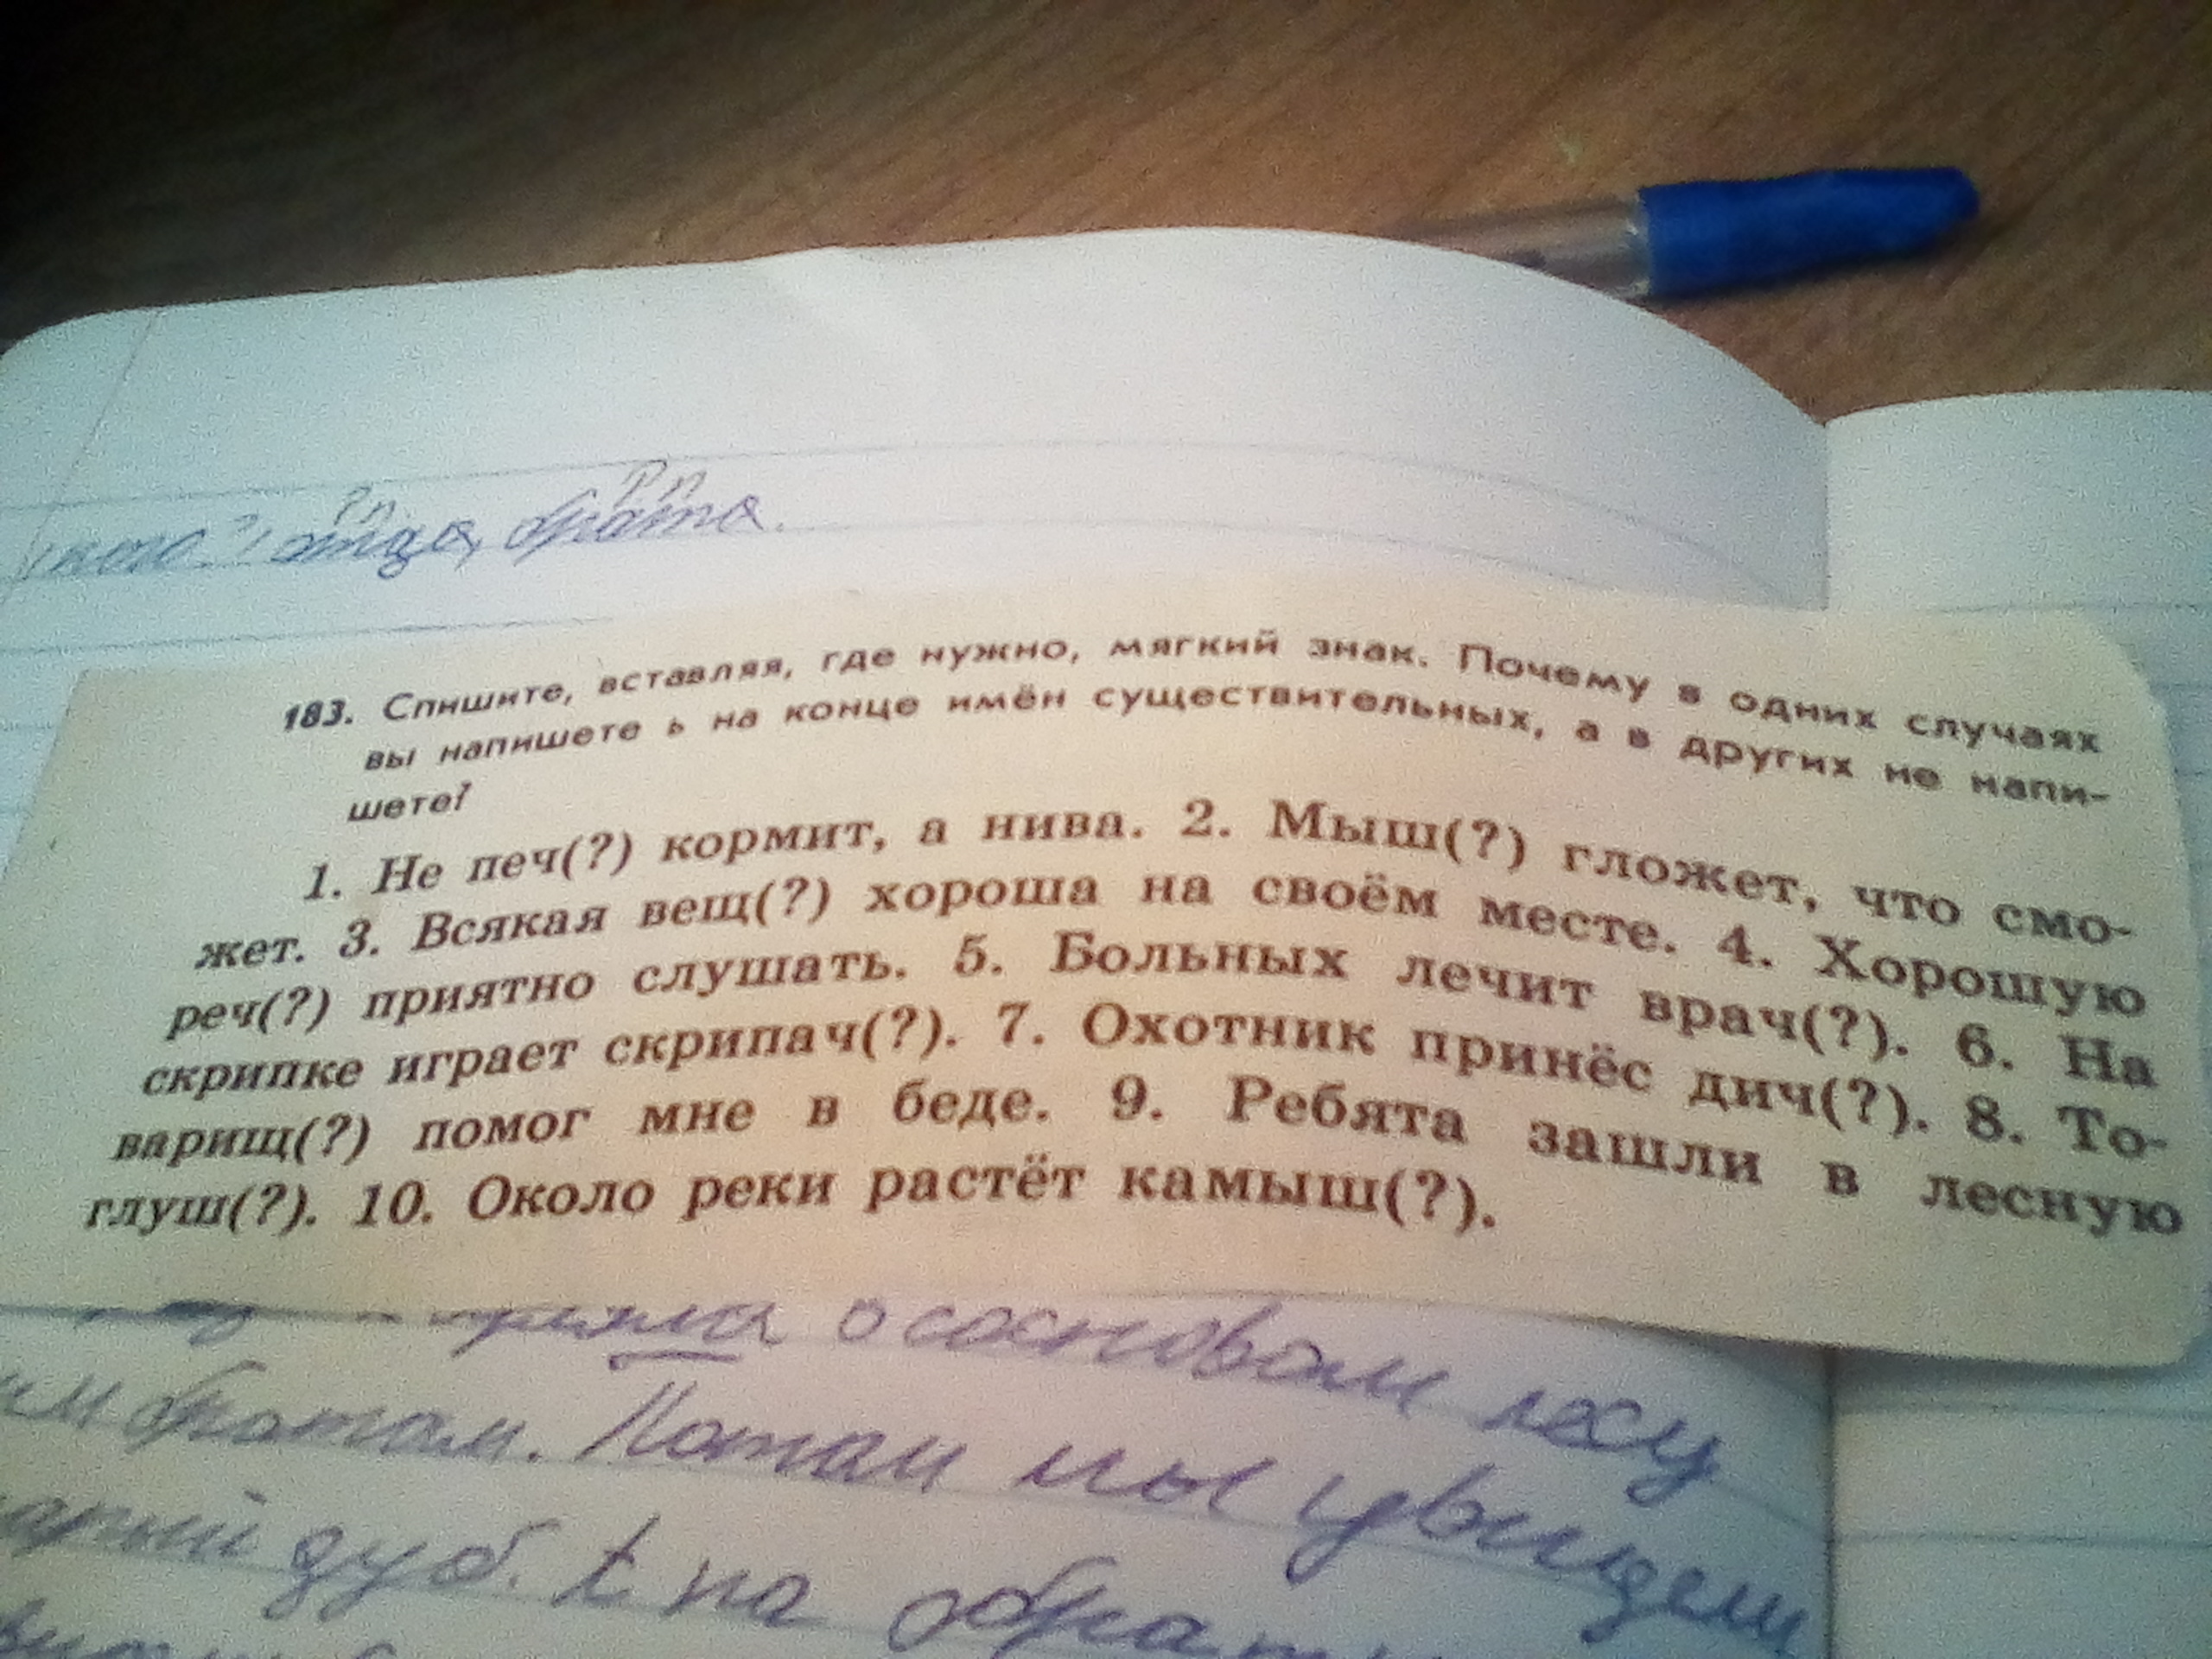 отца, брата.
Р п Р п
183. Спишите, вставляя, где нужно, мягкий знак. Почему в одних случаях
вы напишете ь на конце имён существительных, а в других не напи-
шете?
1. Не печ(?) кормит, а нива. 2. Мыш(?) гложет, что смо-
жет. 3. Всякая вещ(?) хороша на своём месте. 4. Хорошую
реч(?) приятно слушать. 5. Больных лечит врач(?). 6. На
скрипке играет скрипач(?). 7. Охотник принёс дич(?). 8. То-
варищ(?) помог мне в беде. 9. Ребята зашли в лесную
глуш(?). 10. Около реки растёт камыш(?).
о сосновом лесу
братом. Потом мы увидели
дуб. на